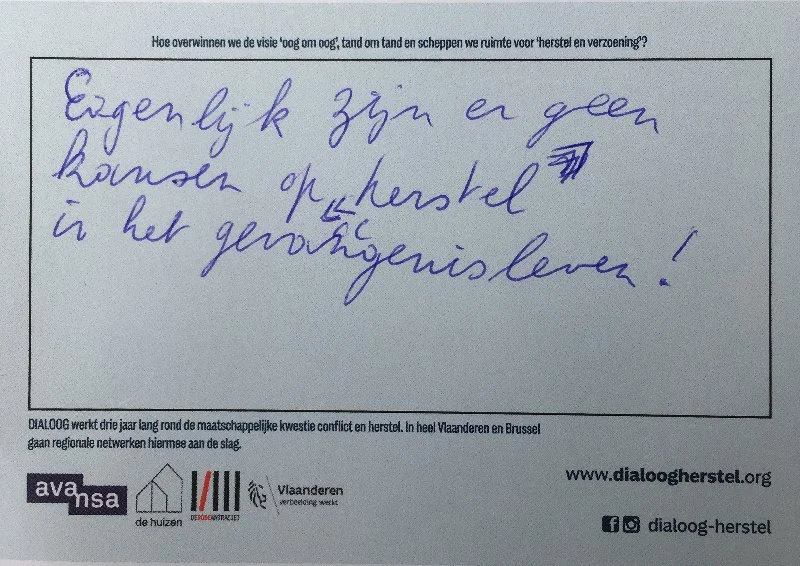 Hoe overwinnen we de visie 'oog om oog', tand om tand en scheppen we ruimte voor 'herstel en verzoening'?
Eigenlijk zijn er geen
kansen op "herstel"
in het gevangenisleven!
DIALOOG werkt drie jaar lang rond de maatschappelijke kwestie conflict en herstel. In heel Vlaanderen en Brussel
gaan regionale netwerken hiermee aan de slag.
avansa
de huizen
DE RODE ANTRACIET
Vlaanderen
verbeelding werkt
www.dialoogherstel.org
dialoog-herstel